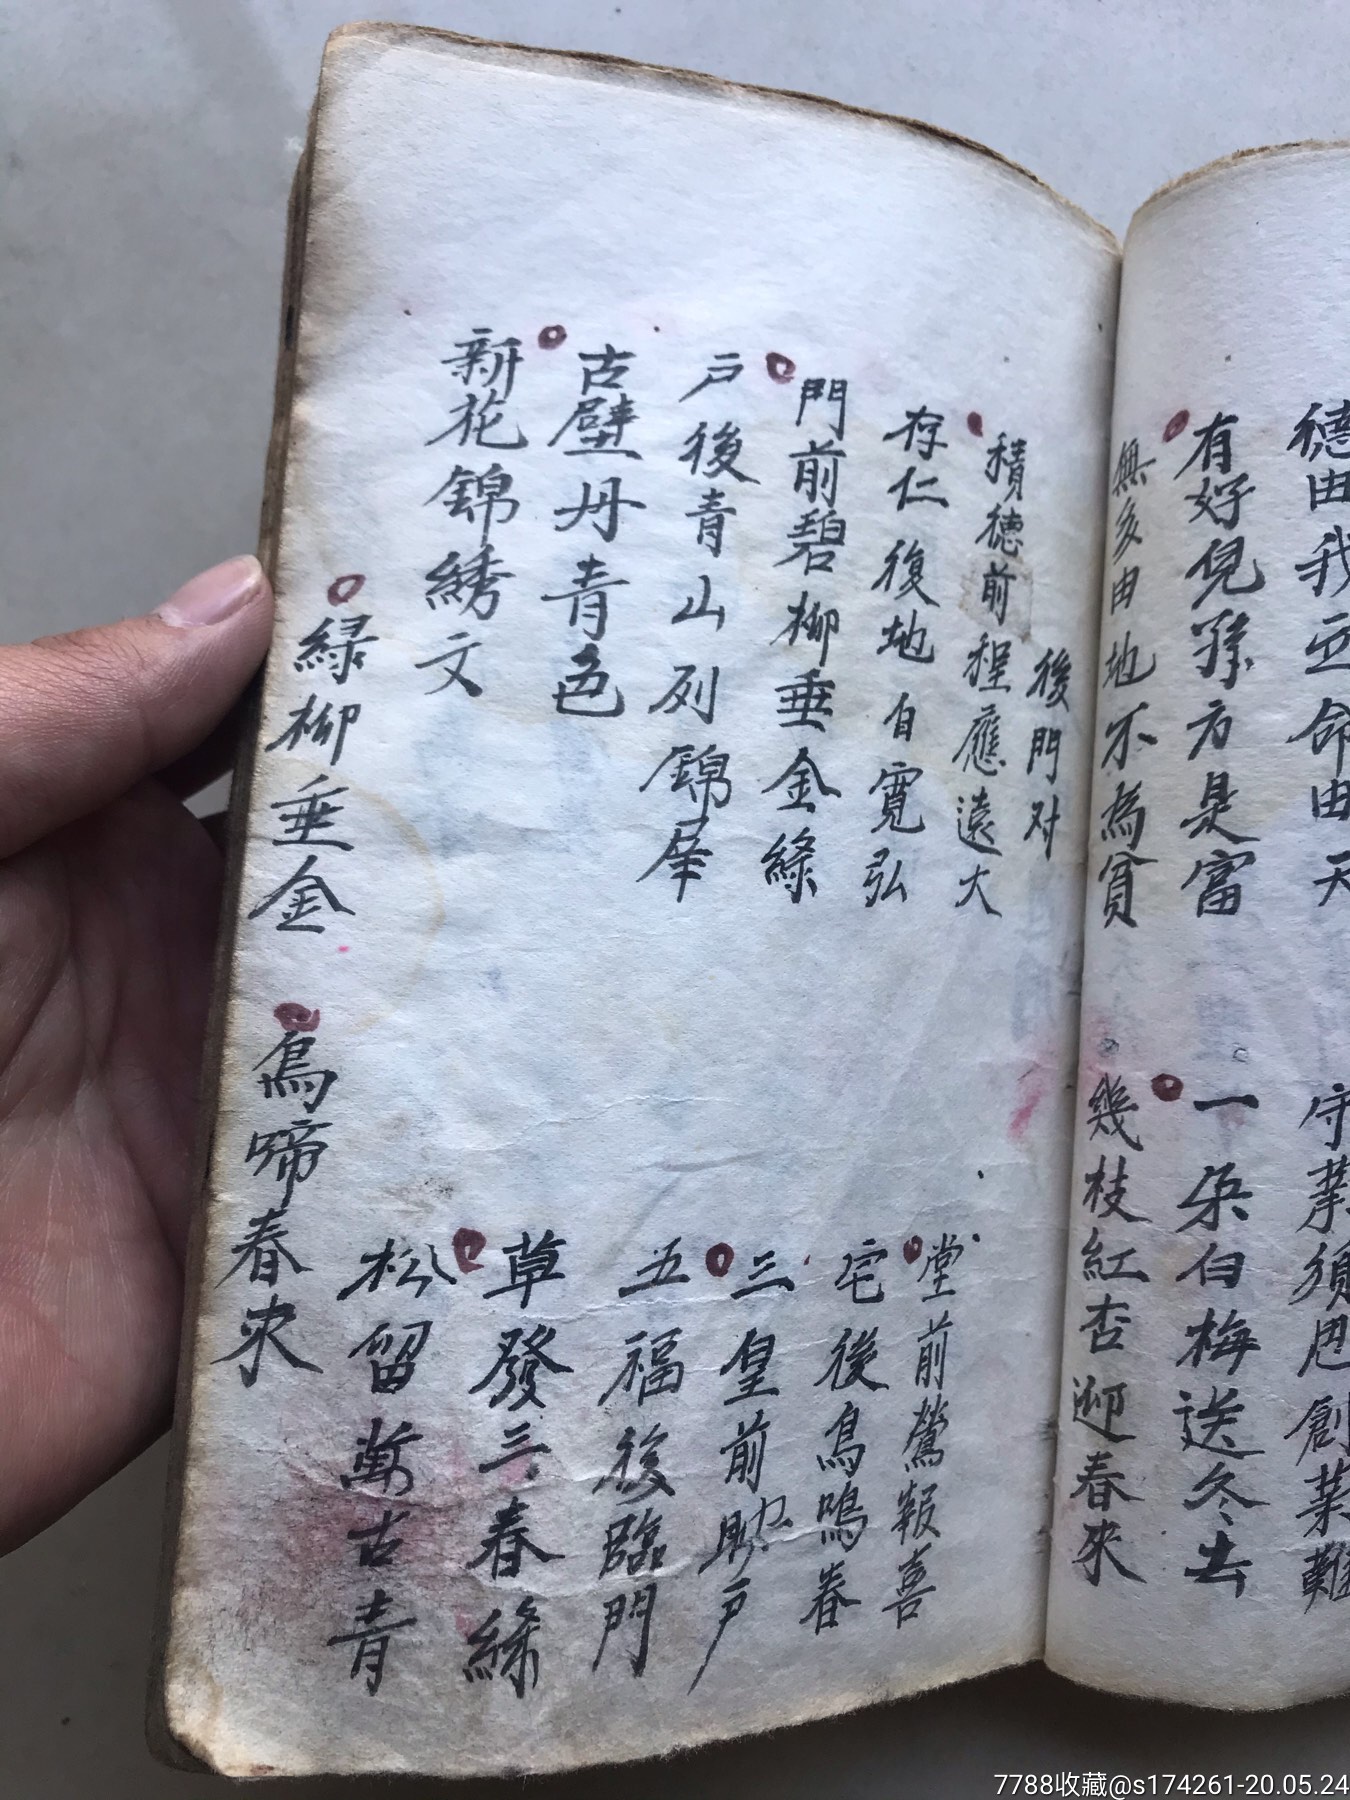 德由我立命由天
有好兒孫方是富
無多由地不為貧
守業須思創業難
一朵白梅送冬去
幾枝紅杏迎春來
後門对
積德前程應遠大
存仁復地自寬弘
門前碧柳垂金綠
戶後青山列錦屏
古壁丹青色
新花錦綉文
綠柳垂金
堂前鶯報喜
宅後鳥鳴春
三皇前助戶
五福後臨門
草發三春綠
松留萬古青
鳥啼春來
7788收藏@s174261-20.05.24